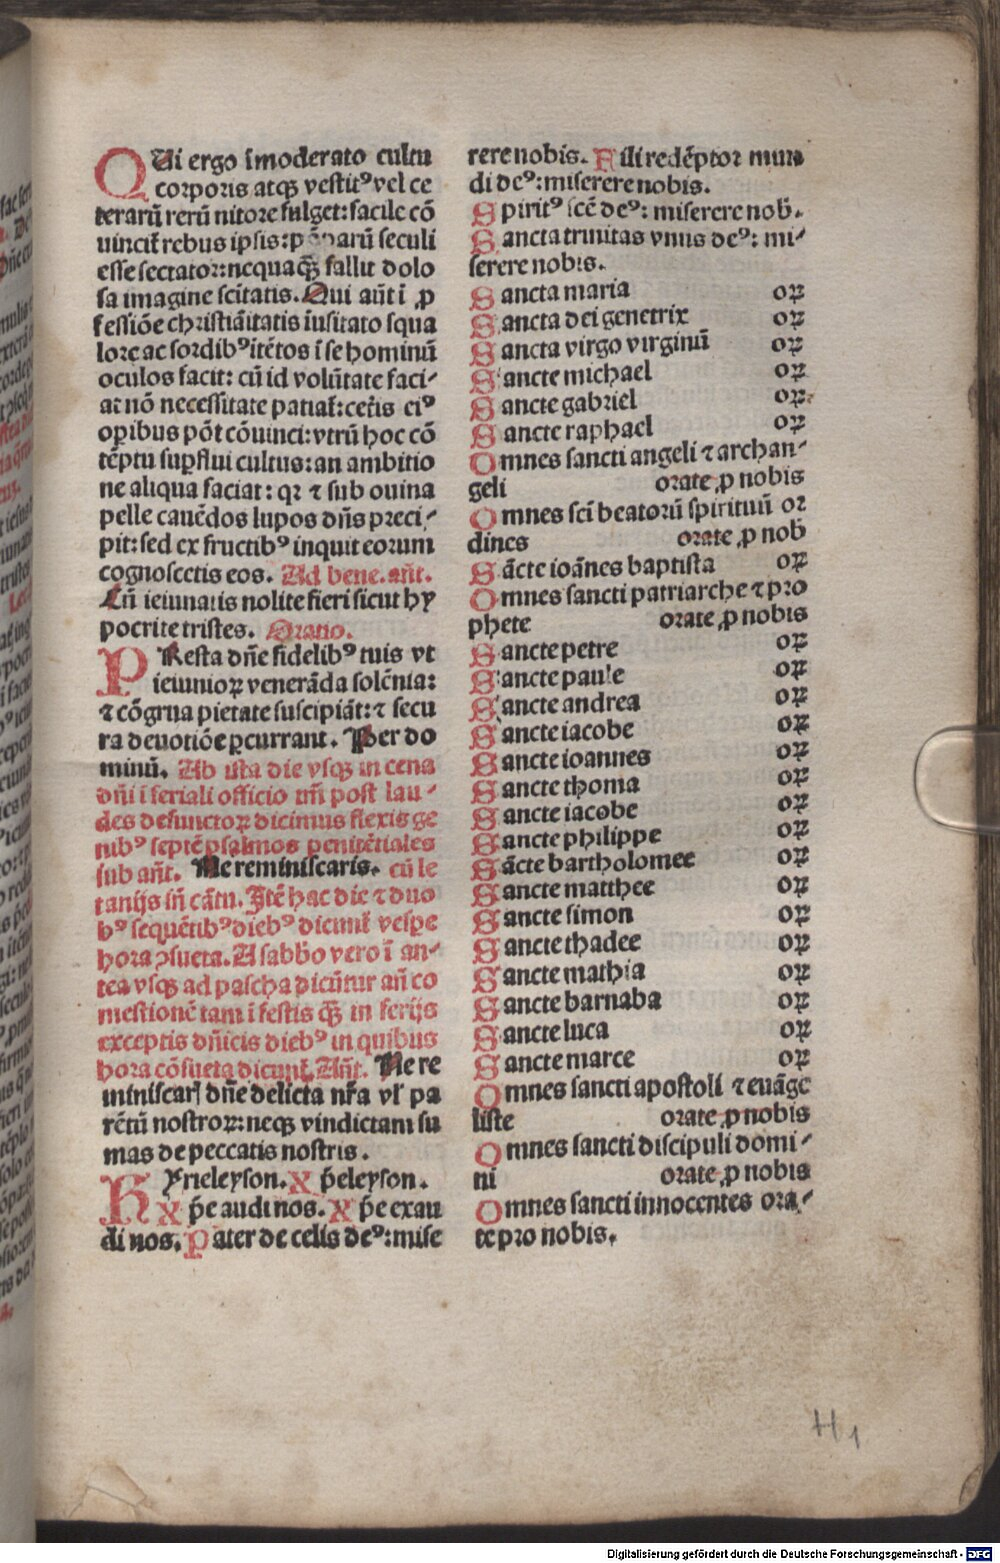 QUi ergo īmoderato cultu
corporis atqꝫ vestitꝰ vel ce
terarū rerū nitore fulget: facile cō
uincit᷑ rebus ipsis: pōparū seculi
esse sectator: nequaqꝫ̃ fallit dolo
sa imagine scītatis. Qui aūt ī ꝓ
fessiōe christiāitatis īusitato squa
lore ac sordibꝰ ītētos ī se hominū
oculos facit: cū id volūtate faci⸗
at nō necessitate patiat᷑: ceteris eiꝰ
oꝑibus pōt cōuinci: vtrū hoc cō
tēptu suꝑflui cultus: an ambitio
ne aliqua faciat: qꝛ ⁊ sub ouina
pelle cauēdos lupos dn̄s preci⸗
pit: sed ex fructibꝰ inquit eorum
cognoscetis eos. Ad bene. an̄t.
Cū ieiunatis nolite fieri sicut hy
pocrite tristes. Oratio.
PResta dn̄e fidelibꝰ tuis vt
ieiunioꝝ venerāda solēnia:
⁊ cōgrua pietate suscipiāt: ⁊ secu
ra deuotiōe ꝑcurrant. Per do
minū. Ab ista die vsqꝫ in cena
dn̄i ī feriali officio tm̄ post lau⸗
des defunctoꝝ dicimus flexis ge
nibꝰ septē psalmos penitētiales
sub an̄t. Ne reminiscaris. cū le
tanijs in̄ cātu. Itē hac die ⁊ duo
bꝰ sequētibꝰ diebꝰ dicunt᷑ vespe
hora ꝯsueta. A sabbō vero ī an⸗
tea vsqꝫ ad pascha dicūtur an̄ co
mestionē tam ī festis qꝫ̃ in ferijs
exceptis dn̄icis diebꝰ in quibus
hora cōsueta dicunt᷑. An̄t. Ne re
miniscaꝭ dn̄e delicta nr̄a vl᷑ pa
rētū nostroꝝ: neqꝫ vindictam su
mas de peccatis nostris.
KYrieleyson. Xp̄eleyson.
Xp̄e audi nos. Xp̄e exau
di nos. Pater de celis deꝰ: mise
rere nobis. Fili redēptor mun
di deꝰ: miserere nobis.
Spiritꝰ scē deꝰ: miserere nob̄.
Sancta trinitas vnus deꝰ: mi⸗
serere nobis.
Sancta maria oꝝ
Sancta dei genetrix oꝝ
Sancta virgo virginū oꝝ
Sancte michael oꝝ
Sancte gabriel oꝝ
Sancte raphael oꝝ
Omnes sancti angeli ⁊ archan⸗
geli orate ꝓ nobis
Omnes scī beatorū spirituū or
dines orate ꝓ nob̄
Sācte ioānes baptista oꝝ
Omnes sancti patriarche ⁊ pro
phete orate ꝓ nobis
Sancte petre oꝝ
Sancte paule oꝝ
Sancte andrea oꝝ
Sancte iacobe oꝝ
Sancte ioannes oꝝ
Sancte thoma oꝝ
Sancte iacobe oꝝ
Sancte philippe oꝝ
Sācte bartholomee oꝝ
Sancte matthee oꝝ
Sancte simon oꝝ
Sancte thadee oꝝ
Sancte mathia oꝝ
Sancte barnaba oꝝ
Sancte luca oꝝ
Sancte marce oꝝ
Omnes sancti apostoli ⁊ euāge
liste orate ꝓ nobis
Omnes sancti discipuli domi⸗
ni orate ꝓ nobis
Omnes sancti innocentes ora⸗
te pro nobis.
H 1
Digitalisierung gefördert durch die Deutsche Forschungsgemeinschaft - DFG